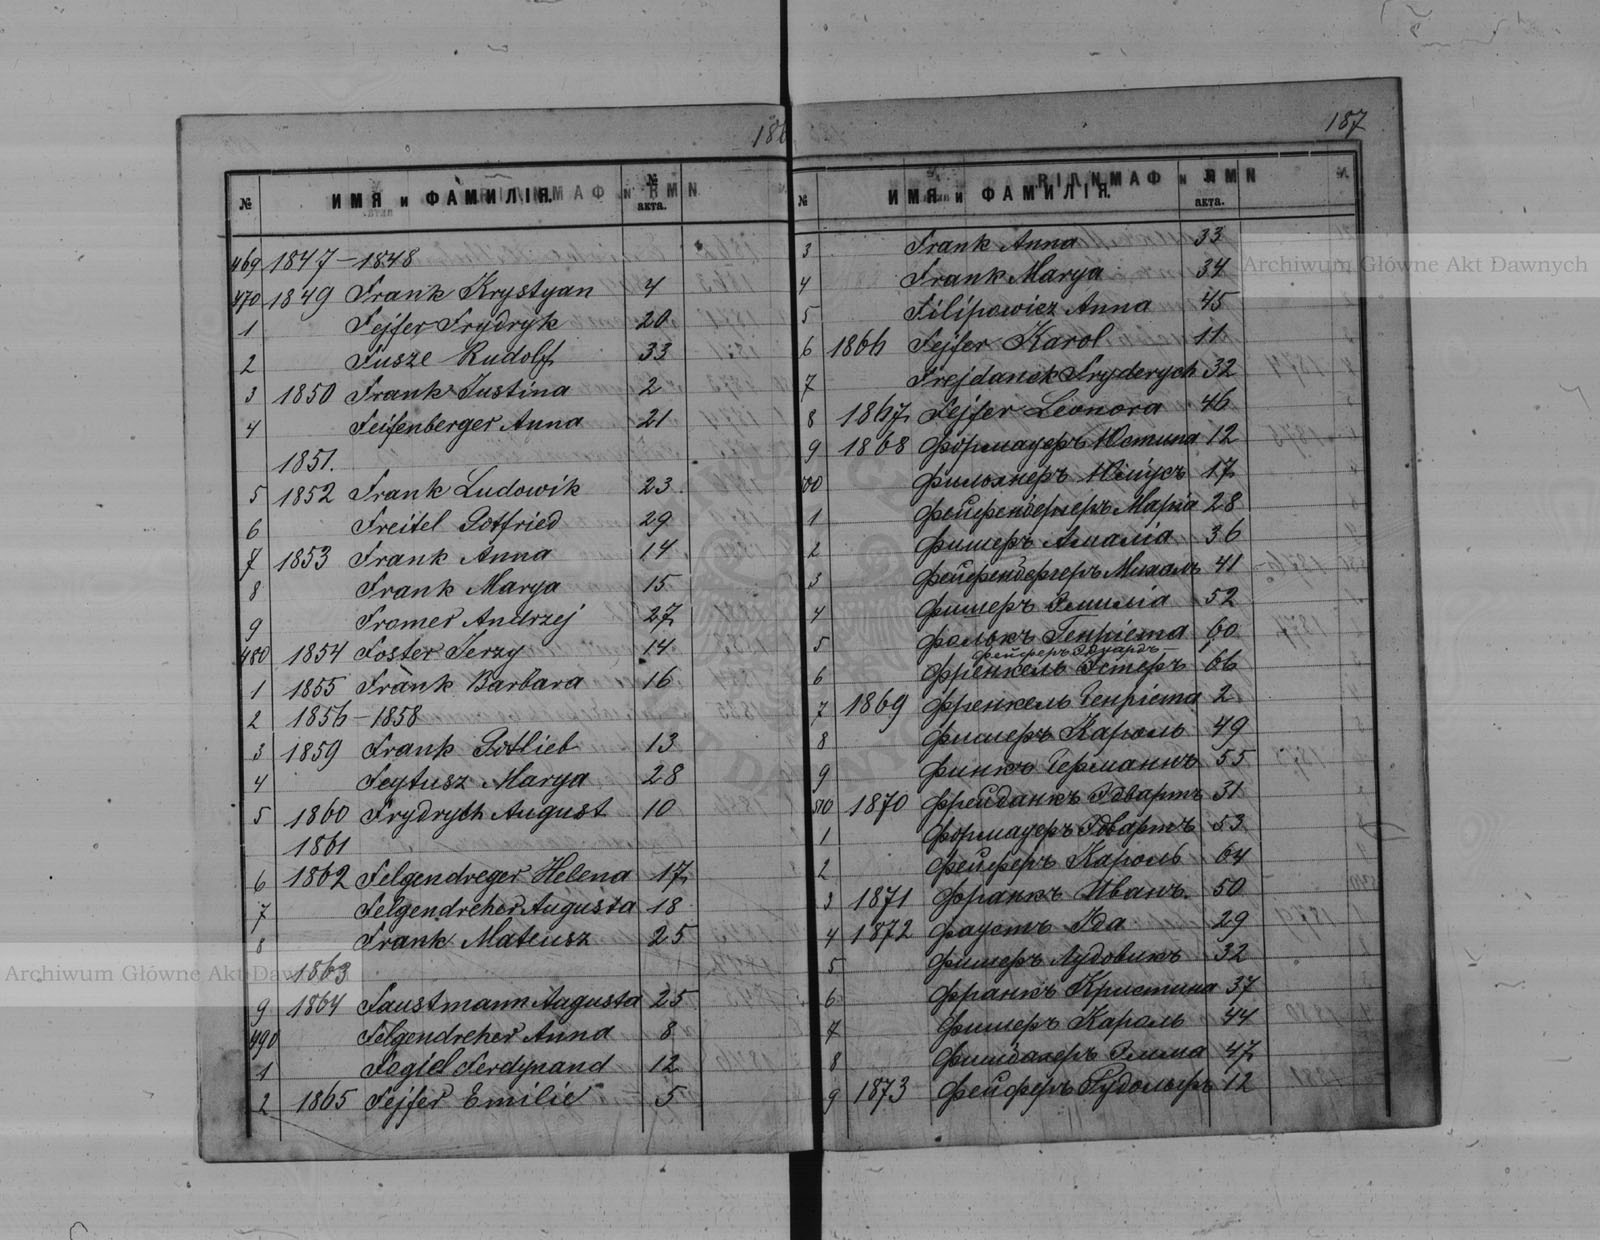 187
№ ИМЯ и ФАМИЛІЯ. № акта.
469 1847-1848
470 1849 Frank Krystyan 4
1 Fejfer Frydryk 20
2 Fusze Rudolf 33
3 1850 Frank Justina 2
4 Feifenberger Anna 21
1851.
5 1852 Frank Ludowik 23
6 Freitel Gotfried 29
7 1853 Frank Anna 14
8 Frank Marya 15
9 Fromer Andrzej 27
480 1854 Foster Jerzy 14
1 1855 Frank Barbara 16
2 1856-1858
3 1859 Frank Gotlieb 13
4 Feytusz Marya 28
5 1860 Frydrych August 10
1861
6 1862 Felgendreger Helena 17
7 Felgendreher Augusta 18
8 Frank Mateusz 25
1863
9 1864 Faustmann Augusta 25
490 Felgendreher Anna 8
1 Fogiel Ferdynand 12
2 1865 Fejfer Emilie 5
№ ИМЯ и ФАМИЛІЯ. № акта.
3 Frank Anna 33
4 Frank Marya 34
5 Filipowicz Anna 45
6 1866 Fejfer Karol 11
7 Frejdanck Fryderych 32
8 1867 Fejfer Leonora 46
9 1868 Формауеръ Юстина 12
500 Фильхнеръ Юліусъ 17
1 Фейфенбергеръ Марія 28
2 Фишеръ Амалія 36
3 Фейфенбергеръ Михалъ 41
4 Фишеръ Эмилія 52
5 Фолькъ Генріета 60
Фейферъ Эдуардъ
6 Френкель Эстеръ 66
7 1869 Френкель Генріета 2
8 Фишеръ Кароль 49
9 Финкъ Германъ 55
510 1870 Фрейданкъ Эдвартъ 31
1 Формауеръ Эдвартъ 53
2 Фейферъ Кароль 64
3 1871 Франкъ Иванъ 50
4 1872 Фаустъ Ида 29
5 Фишеръ Лудовикъ 32
6 Франкъ Кристина 37
7 Фишеръ Кароль 44
8 Эмма 47
9 1873 Фейферъ Рудольфъ 12
Archiwum Główne Akt Dawnych
Archiwum Główne Akt Dawnych